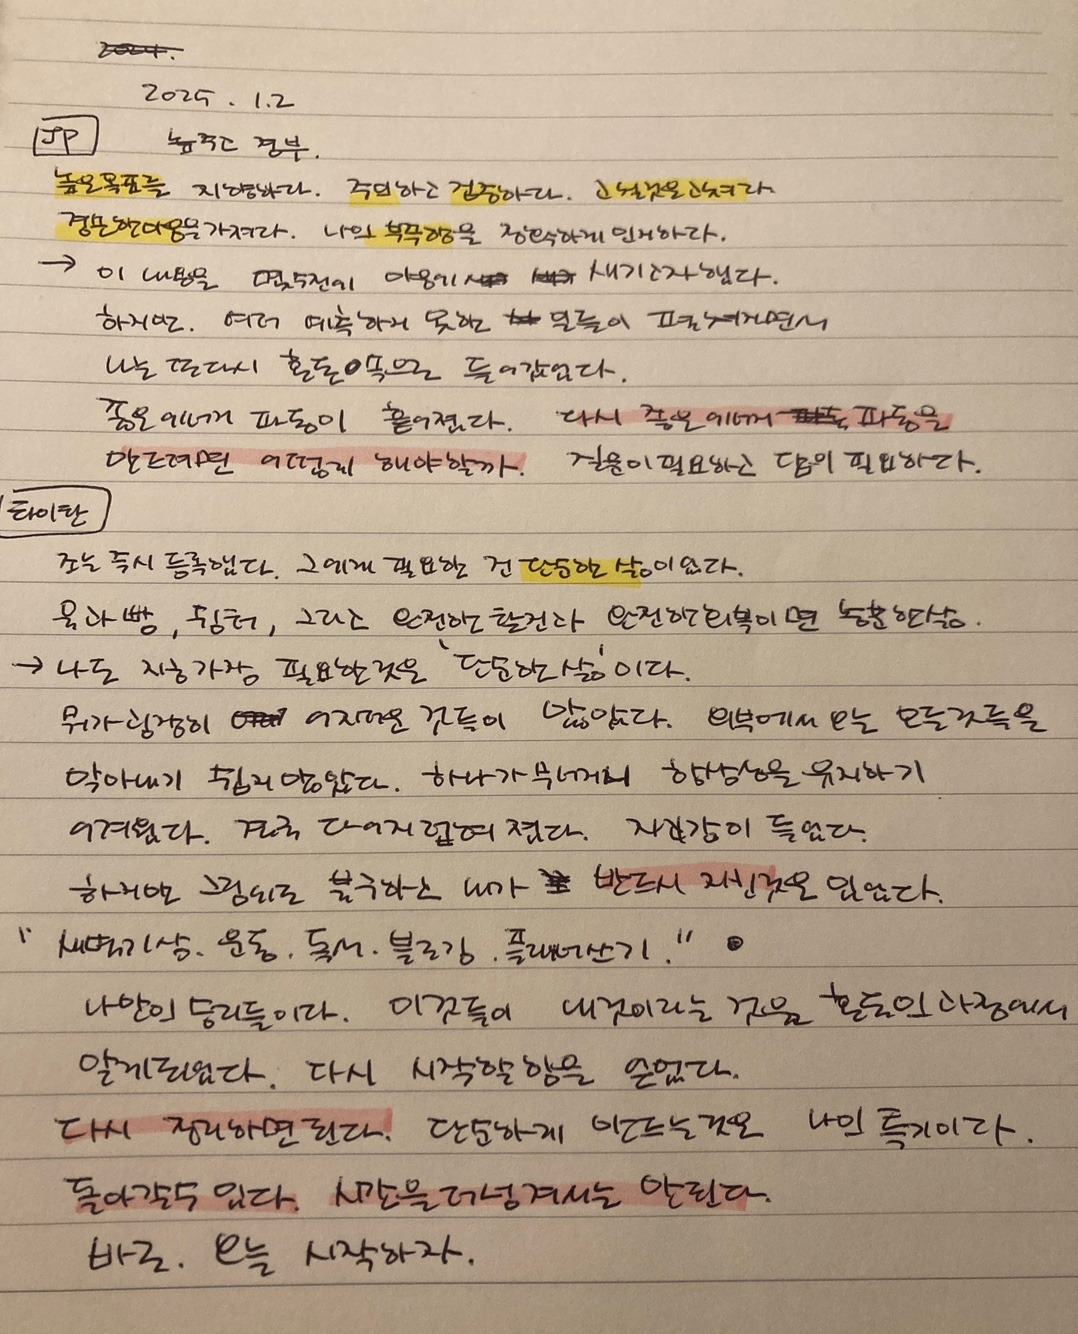 2024.
2025. 1. 2
JP
높은목표를 지향하다. 주의하고 검증하다. 고칠것을고쳐라
겸손한마음을가져라. 나의 부족함을 정직하게 인지하다.
→ 이 내용을 새기고자했다.
하지만. 여러 예측하지 못한 일들이 펼쳐지면서
나는 또다시 혼돈속으로 들어갔었다.
좋은에너지 파동이 흩어졌다. 다시 좋은에너지 파동을
만드려면 어떻게 해야할까. 질문이필요하고 답이 필요하다.
타이탄
조는 즉시 등록했다. 그에게 필요한 건 단순한 삶이었다.
물과 빵, 쉼터, 그리고 완전한 단련과 완전한회복이면 충분한삶.
→ 나도 지금가장 필요한것은 '단순한 삶'이다.
뭐가 굉장히 어지러운 것들이 많았다. 외부에서 오는 모든것들을
막아내기 쉽지 않았다. 하나가무너지니 항상성을 유지하기
어려웠다. 결국 다어지럽혀 졌다. 자괴감이 들었다.
하지만 그럼에도 불구하고 내가 반드시 지킨것은 있었다.
"새벽기상. 운동. 독서. 블로깅. 플래너쓰기."
나만의 승리들이다. 이것들이 내것이라는 것을 혼돈의 과정에서
알게되었다. 다시 시작할힘을 얻었다.
다시 정리하면된다. 단순하게 만드는것은 나의 특기이다.
돌아갈수 있다. 시간을더넘겨서는 안된다.
바로. 오늘 시작하자.